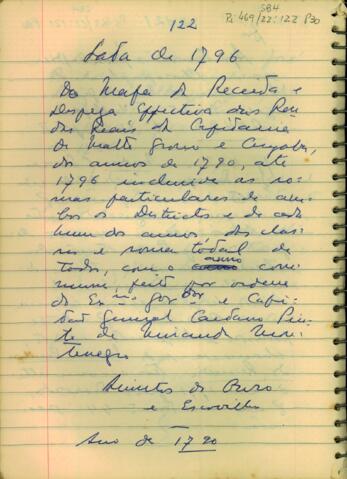 122
SB4
Pi 469/22:122 P30
Data de 1796
Do Mapa da Receida e
Despeza Effectiva das Ren
das Reais da Capidania
de Matto Groso e Cuyaba,
dos annos de 1790, até
1796 incluzive as so
mas particulares de am
bos os Districtos e de cada
hum dos annos dos
e soma tódal de
todos, com o anno com
mum, feito por ordem
do Ex.mo Gor.dor e Capi
tão General Caetano Pin
to de Miranda Mon
tenegro
Quintos do Ouro
e Escovilha
Ano de 1790